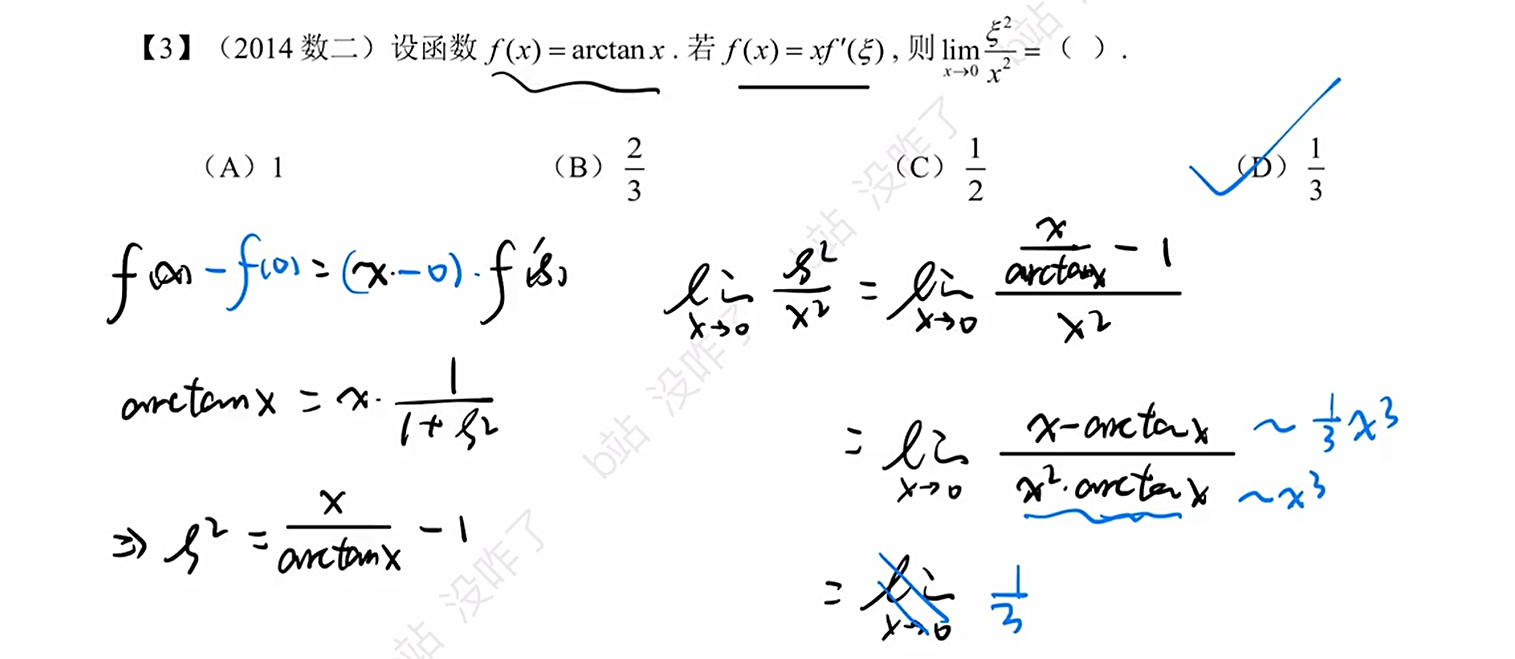 【3】（2014 数二）设函数 f(x) = arctan x . 若 f(x) = xf′(ξ) , 则 lim_{x→0} ξ²/x² = （ ）.
（A）1 （B）2/3 （C）1/2 （D）1/3
f(x) - f(0) = (x - 0) · f′(ξ)
arctan x = x · 1/(1+ξ²)
⇒ ξ² = x/arctan x - 1
lim_{x→0} ξ²/x² = lim_{x→0} (x/arctan x - 1)/x²
= lim_{x→0} (x - arctan x)/(x² · arctan x) ~ 1/3 x³ ~ x³
= lim_{x→0} 1/3
b站 没咋了
b站 没咋了
b站 没咋了
b站 没咋了